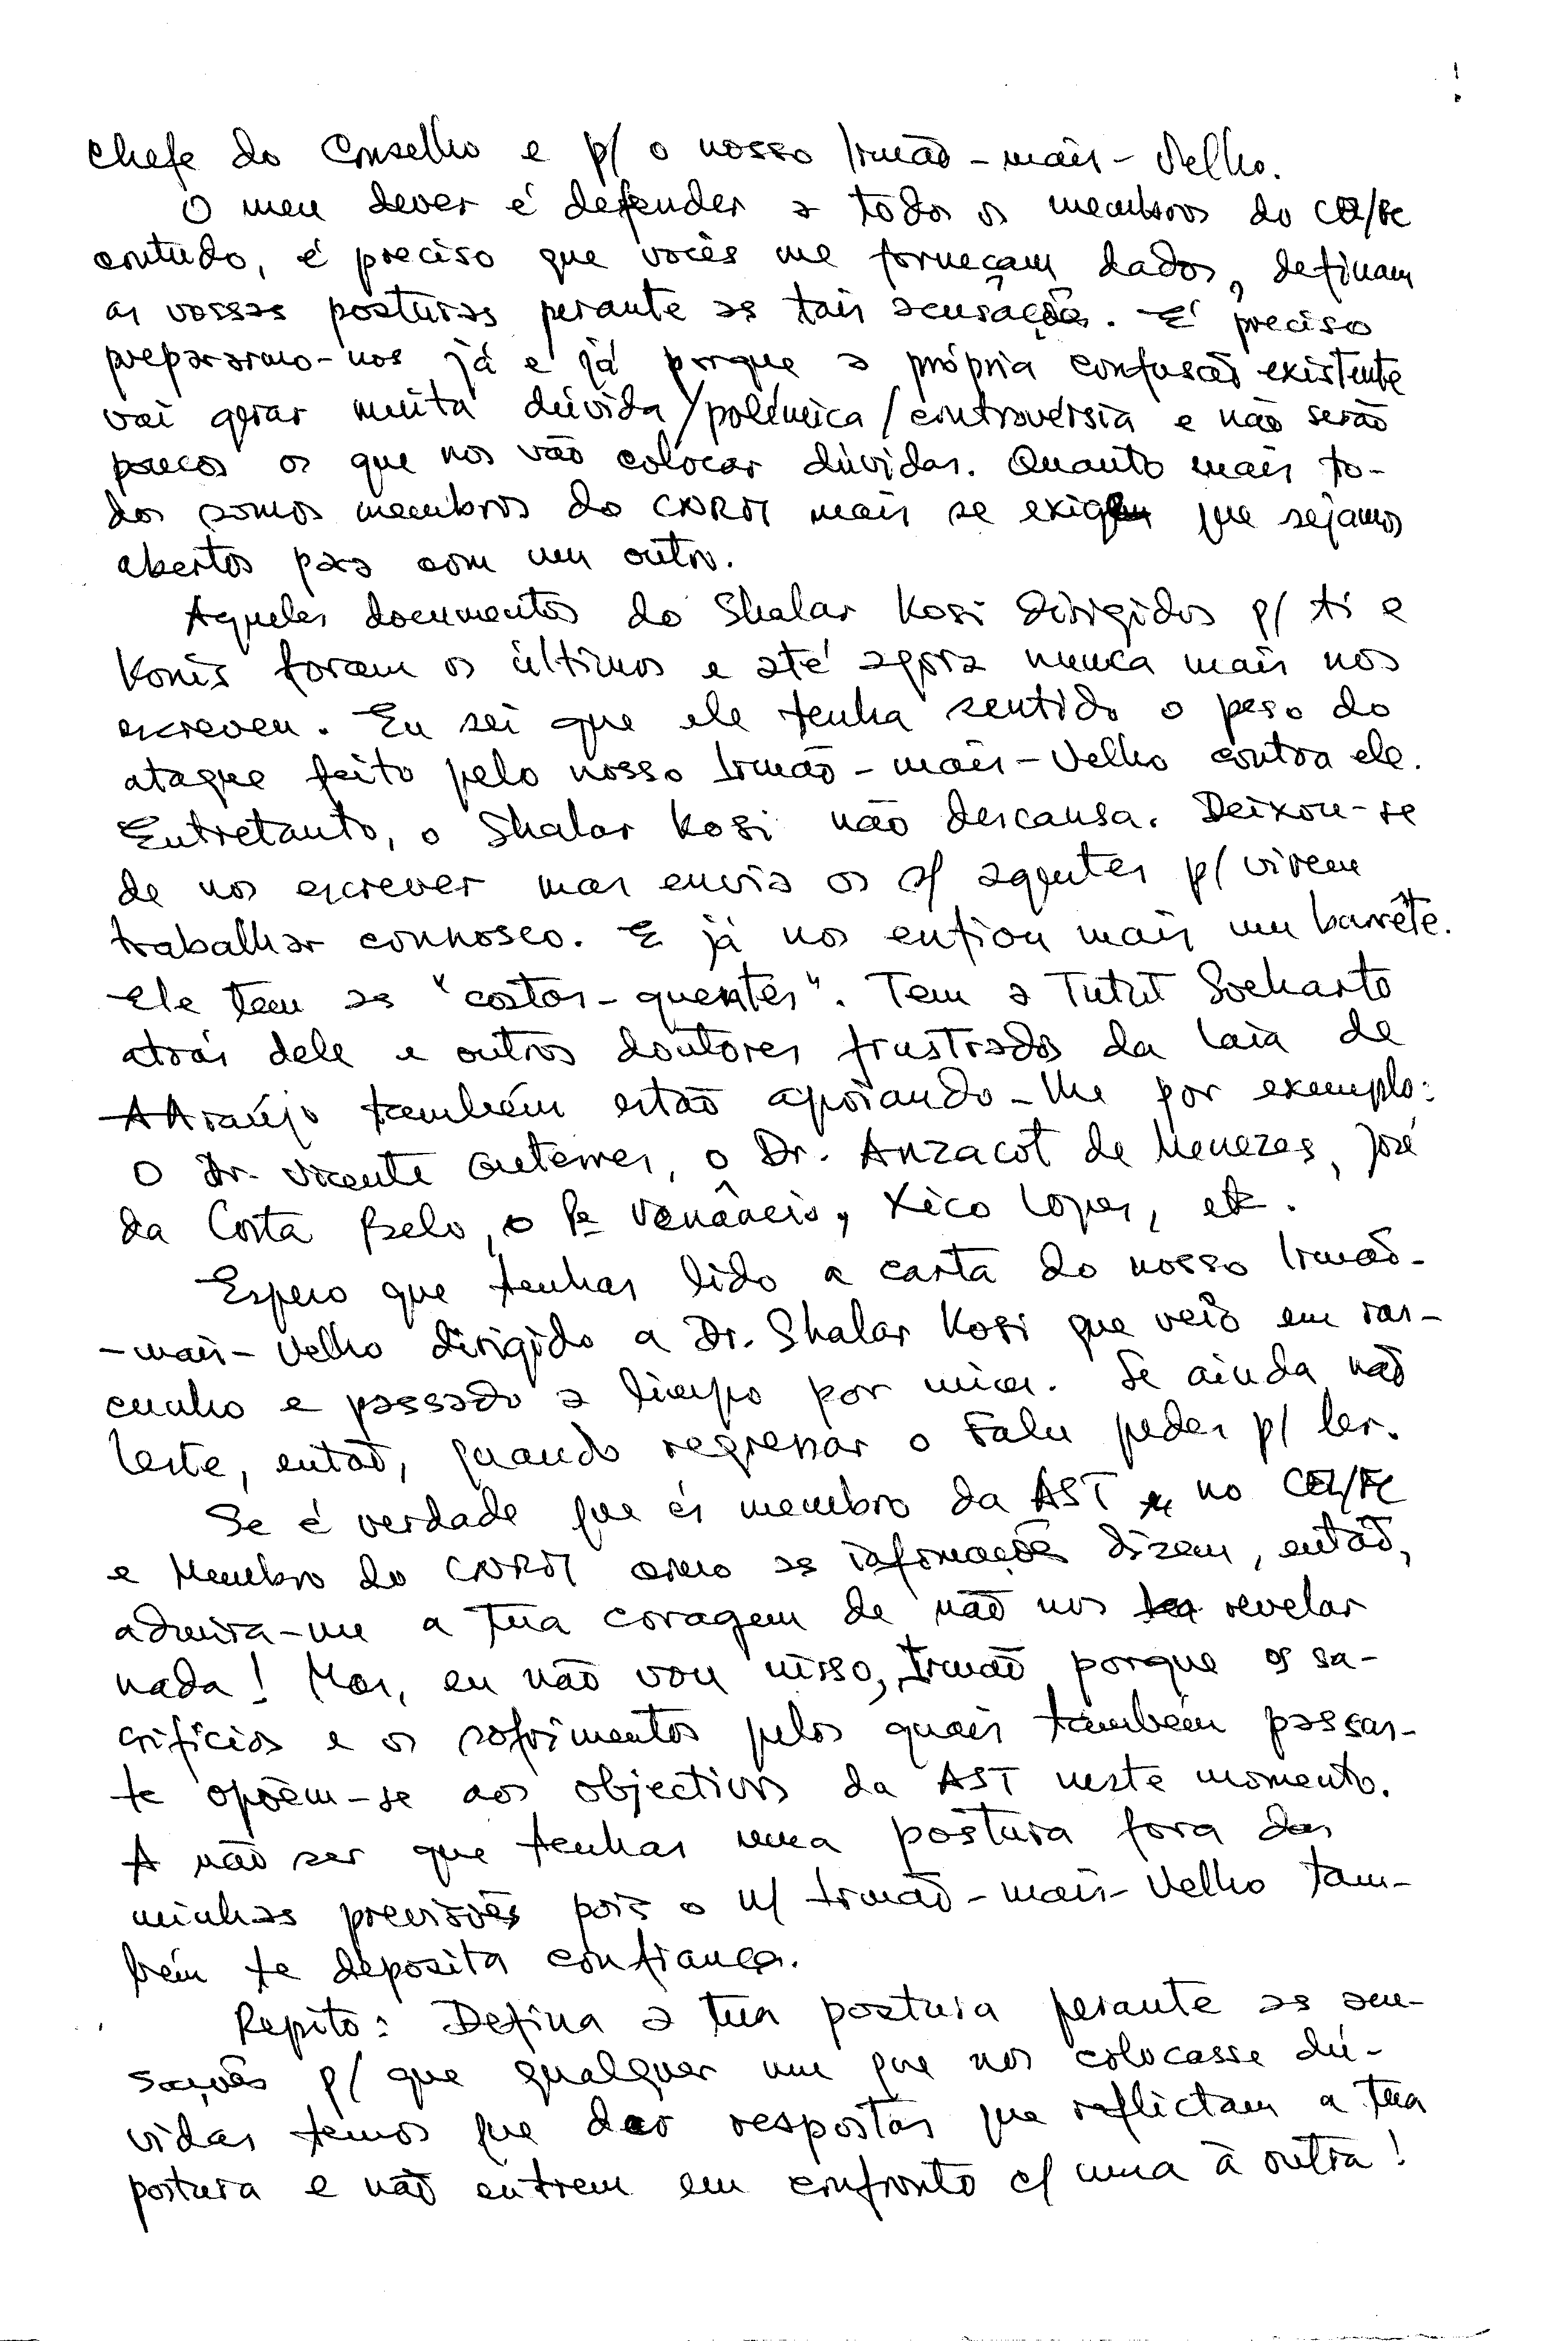 chefe do Conselho e p/ o nosso Irmão-mais-Velho.
O meu dever é defender a todos os membros do CE/FC
contudo, é preciso que vocês me forneçam dados, definam
as vossas posturas perante as tais acusações. É preciso
prepararmo-nos já e já porque a própria confusão existente
vai gerar muita dúvida/polémica/controvérsia e não serão
poucos os que nos vão colocar dúvidas. Quanto mais to-
dos somos membros do CNRM mais se exige que sejamos
abertos para com um outro.
Aqueles documentos do Shalar Kosi dirigidos p/ ti e
Konis foram os últimos e até agora nunca mais nos
escreveu. Eu sei que ele tenha sentido o peso do
ataque feito pelo nosso Irmão-mais-Velho contra ele.
Entretanto, o Shalar Kosi não descansa. Deixou-se
de nos escrever mas envia os s/ agentes p/ virem
trabalhar connosco. E já nos enfiou mais um barrête.
Ele tem as "costas-quentes". Tem a Tutut Soeharto
atrás dele e outros doutores frustrados da laia de
AAraújo também estão apoiando-lhe por exemplo:
O Dr. Vicente Guterres, o Dr. Anzacot de Menezes, José
da Costa Belo, o Pe Venâncio, Xico Lopes, etc.
Espero que tenhas lido a carta do nosso Irmão-
-mais-Velho dirigido a Dr. Shalar Kosi que veio em ras-
cunho e passado a limpo por mim. Se ainda não
leste, então, quando regressar o Falu pedes p/ ler.
Se é verdade que és membro da AST no CE/FC
e Membro do CNRM como as informações dizem, então,
admira-me a tua coragem de não nos revelar
nada! Mas, eu não vou nisso, Irmão porque os sa-
crifícios e os sofrimentos pelos quais também passas-
te opõem-se aos objectivos da AST neste momento.
A não ser que tenhas uma postura fora das
minhas previsões pois o n/ Irmão-mais-Velho tam-
bém te deposita confiança.
Repito: Defina a tua postura perante as acu-
sações p/ que qualquer um que nos colocasse dú-
vidas temos que dar respostas que reflictam a tua
postura e não entrem em confronto c/ uma à outra!